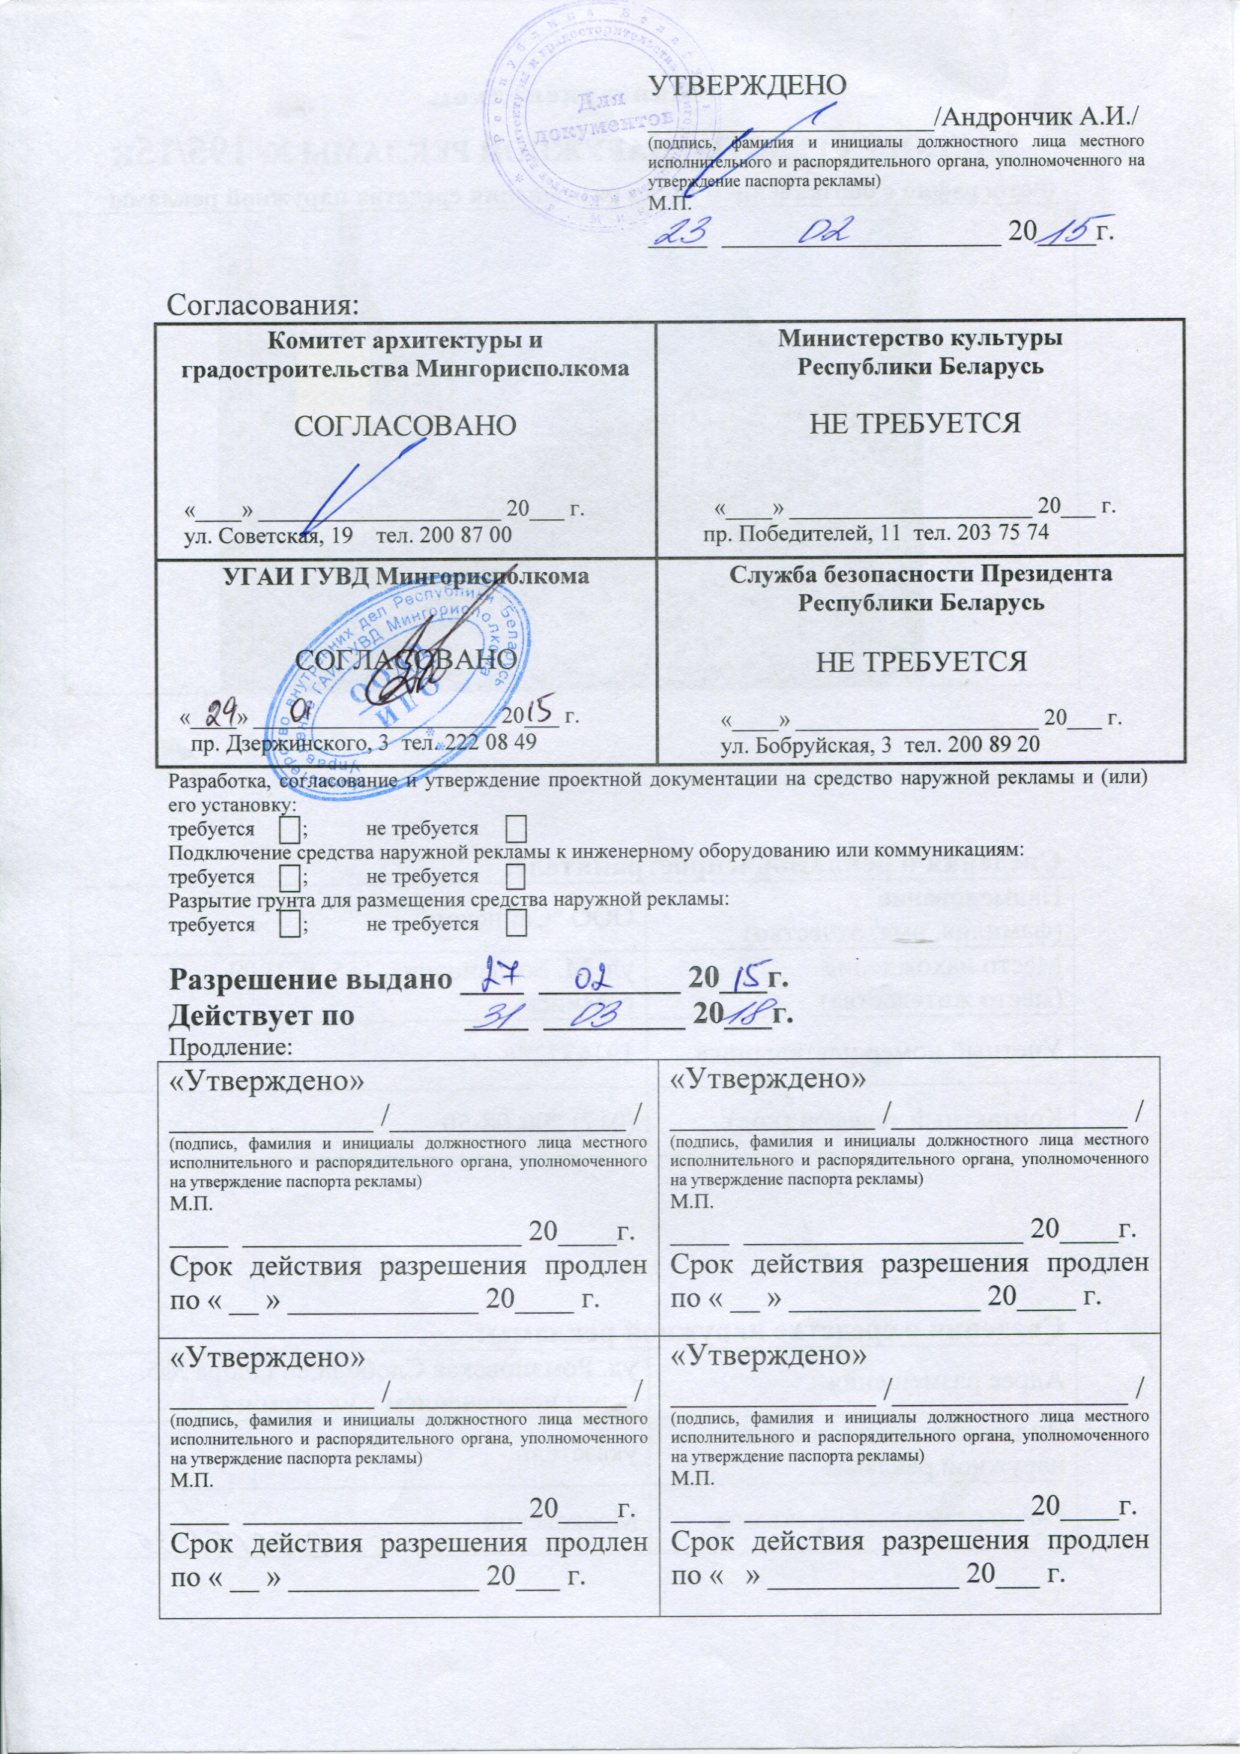 УТВЕРЖДЕНО
____________________/Андрончик А.И./
(подпись, фамилия и инициалы должностного лица местного
исполнительного и распорядительного органа, уполномоченного на
утверждение паспорта рекламы)
М.П.
23 02 2015г.
Для
документов
Согласования:
Комитет архитектуры и
градостроительства Мингорисполкома
СОГЛАСОВАНО
«____» ____________________ 20___ г.
ул. Советская, 19 тел. 200 87 00
Министерство культуры
Республики Беларусь
НЕ ТРЕБУЕТСЯ
«____» ____________________ 20___ г.
пр. Победителей, 11 тел. 203 75 74
УГАИ ГУВД Мингорисполкома
СОГЛАСОВАНО
«29» 01 2015 г.
пр. Дзержинского, 3 тел. 222 08 49
Служба безопасности Президента
Республики Беларусь
НЕ ТРЕБУЕТСЯ
«____» ____________________ 20___ г.
ул. Бобруйская, 3 тел. 200 89 20
Разработка, согласование и утверждение проектной документации на средство наружной рекламы и (или)
его установку:
требуется ; не требуется
Подключение средства наружной рекламы к инженерному оборудованию или коммуникациям:
требуется ; не требуется
Разрытие грунта для размещения средства наружной рекламы:
требуется ; не требуется
Разрешение выдано 27 02 2015г.
Действует по 31 03 2018г.
Продление:
«Утверждено»
______________ /________________ /
(подпись, фамилия и инициалы должностного лица местного
исполнительного и распорядительного органа, уполномоченного
на утверждение паспорта рекламы)
М.П.
____ ___________________ 20____г.
Срок действия разрешения продлен
по « __ » _____________ 20____ г.
«Утверждено»
______________ /________________ /
(подпись, фамилия и инициалы должностного лица местного
исполнительного и распорядительного органа, уполномоченного
на утверждение паспорта рекламы)
М.П.
____ ___________________ 20____г.
Срок действия разрешения продлен
по « __ » _____________ 20____ г.
«Утверждено»
______________ /________________ /
(подпись, фамилия и инициалы должностного лица местного
исполнительного и распорядительного органа, уполномоченного
на утверждение паспорта рекламы)
М.П.
____ ___________________ 20____г.
Срок действия разрешения продлен
по « __ » _____________ 20___ г.
«Утверждено»
______________ /________________ /
(подпись, фамилия и инициалы должностного лица местного
исполнительного и распорядительного органа, уполномоченного
на утверждение паспорта рекламы)
М.П.
____ ___________________ 20____г.
Срок действия разрешения продлен
по « » _____________ 20___ г.